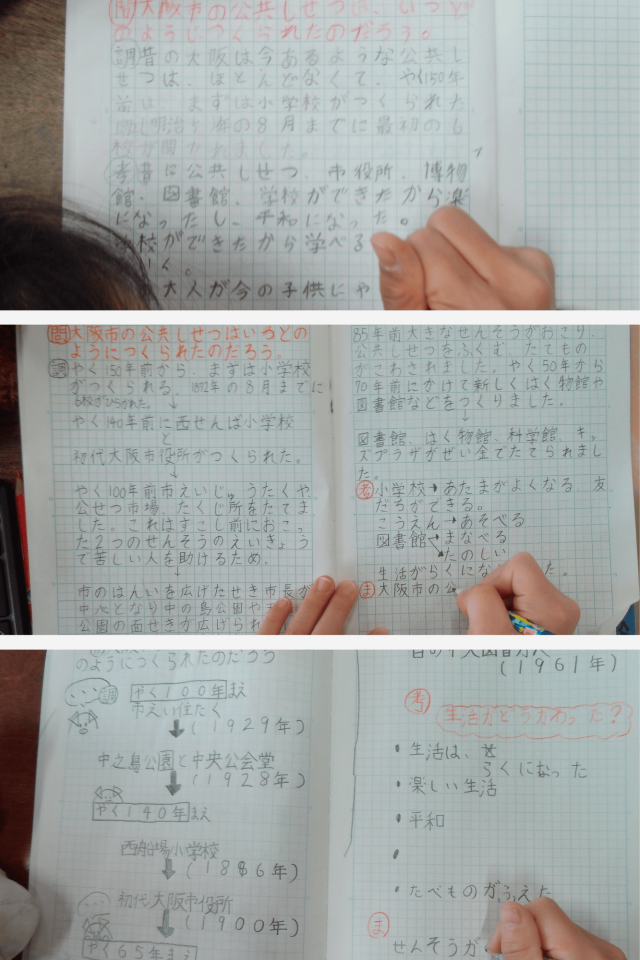 問 大阪市の公共しせつは、いつど
のようにつくられたのだろう。
調 昔の大阪は今あるような公共し
せつは、ほとんどなくて、やく150年
前は、まずは小学校がつくられた
明治5年の8月までに最初の
校が開かれました。
考 昔は公共しせつ、市役所、博物
館、図書館、学校ができたから楽
になったし、平和になった。
学校ができたから学べる
く。
大人が今の子供にや
問 大阪市の公共しせつはいつどの
ようにつくられたのだろう。
調 やく150年前から、まずは小学校
がつくられる。1872年の8月までに
6校がひらかれた。
↓
やく140年前に西せんば小学校
と
初代大阪市役所がつくられた。
↓
やく100年前市えいじゅうたくや
公せつ市場、たくじ所をたてま
した。これはすこし前におこっ
た2つのせんそうのえいきょう
で苦しい人を助けるため.
↓
市のはんいを広げたせき市長が
中心となり中の島公園や
公園の面せきが広げられ
85年前大きなせんそうがおこり、
公共しせつをふくむ、たてもの
がこわされました。やく50年から
70年前にかけて新しくはく物館や
図書館などをつくりました。
↓
図書館、はく物館、科学館、キッ
ズプラザがぜい金でたてられまし
た。
考 小学校→あたまがよくなる 友
だちができる。
こうえん→あそべる
図書館→まなべる
たのしい
生活がらくにな た。
ま 大阪市の公
のようにつくられたのだろう
調 やく100年まえ
市えい住たく
(1929年)
中之島公園と中央公会堂
(1928年)
やく140年まえ
西船場小学校
(1886年)
初代大阪市役所
(1900年)
やく65年まえ
(1961年)
考
生活がどうかわった?
・生活は、
らくになった
・楽しい生活
・平和
・
・たべものがふえた
ま
せんそうが